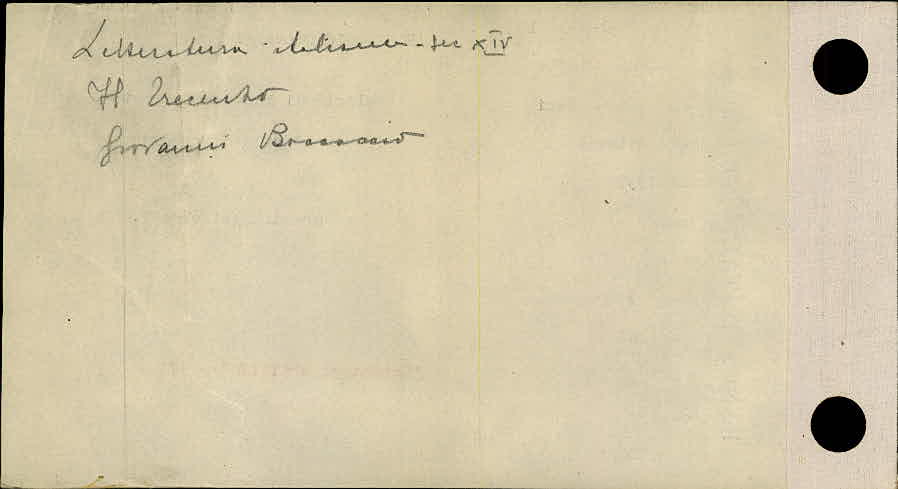 Letteratura italiana - sec XIV
Il Trecento
Giovanni Boccaccio